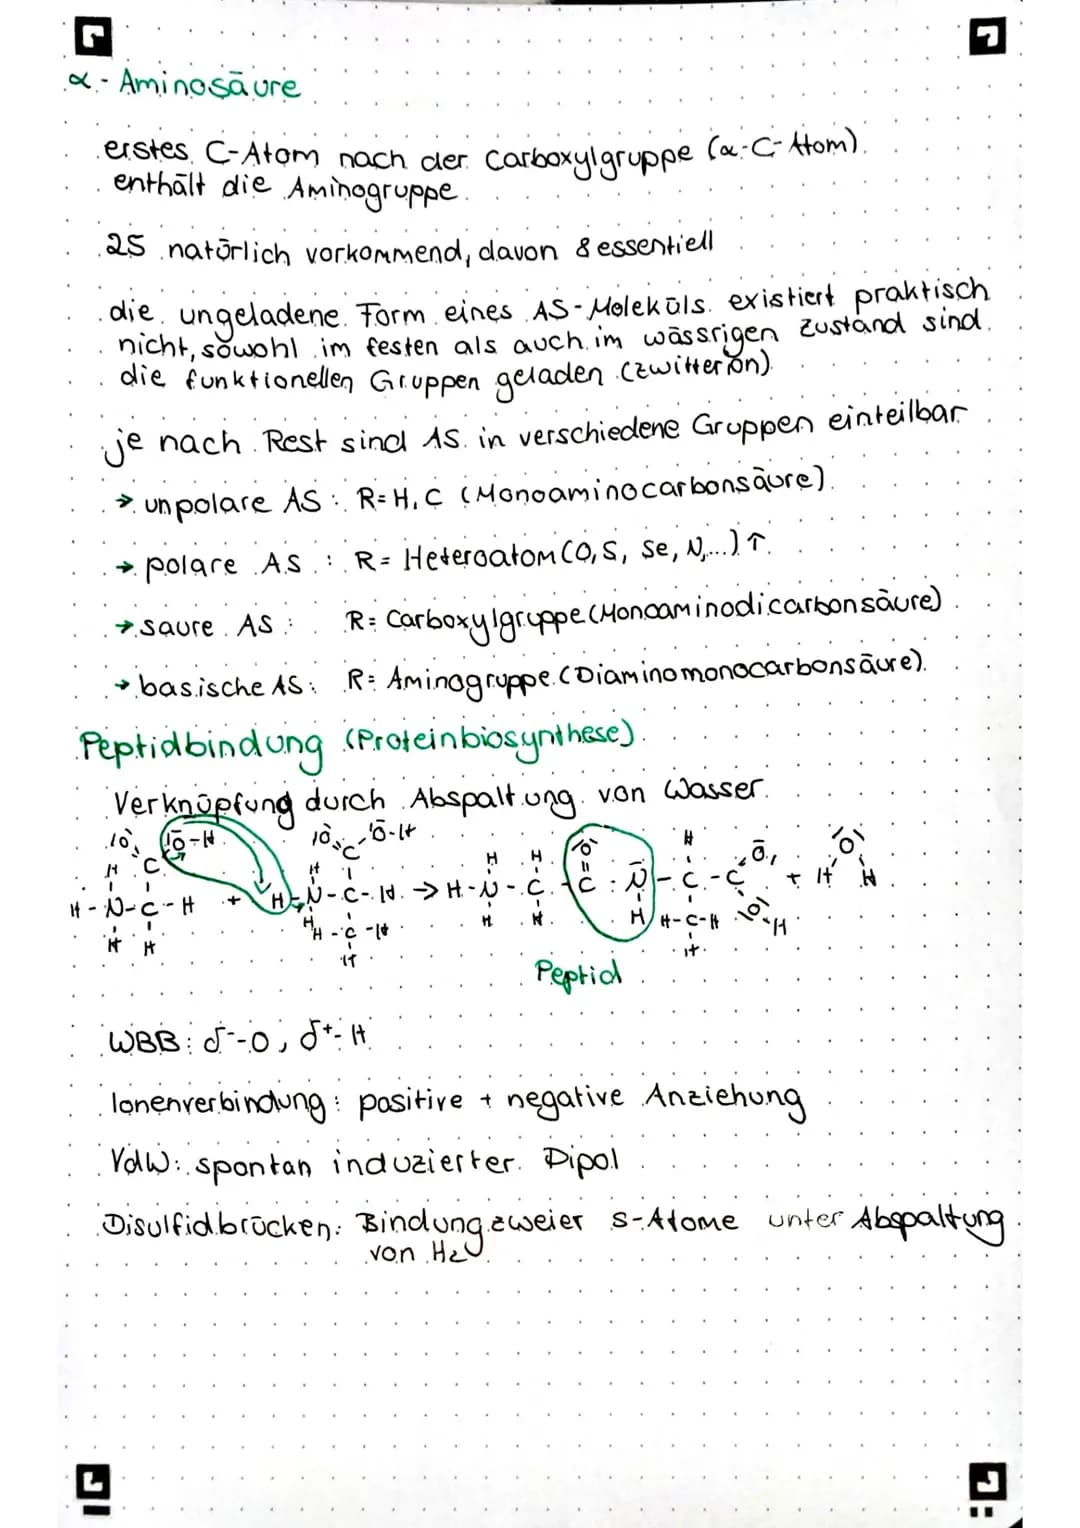 α-Aminosäure
erstes C-Atom nach der Carboxylgruppe (α-C-Atom)
enthält die Aminogruppe.
25 natürlich vorkommend, davon 8 essentiell
die ungeladene Form eines AS-Moleküls existiert praktisch
nicht, sowohl im festen als auch im wässrigen Zustand sind
die funktionellen Gruppen geladen (Zwitterion)
je nach Rest sind AS in verschiedene Gruppen einteilbar
→ unpolare AS: R=H,C (Monoaminocarbonsäure)
→ polare AS: R= Heteroatom (O, S, Se, N,...)↑
→ saure AS: R= Carboxylgruppe (Monoaminodicarbonsäure)
→ basische AS: R= Aminogruppe (Diaminomonocarbonsäure)
Peptidbindung (Proteinbiosynthese)
Verknüpfung durch Abspaltung von Wasser
Peptid
WBB: δ⁻-O, δ⁺-H
Ionenverbindung: positive + negative Anziehung
VdW: spontan induzierter Dipol
Disulfidbrücken: Bindung zweier S-Atome unter Abspaltung
von H₂